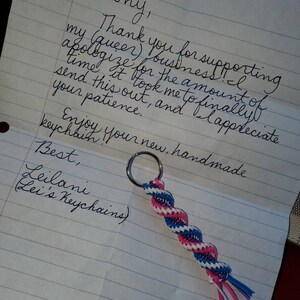 ny,
Thank you for supporting
my (queer) business. I
apologize for the amount of
time it took me to finally
send this out, and I appreciate
your patience.
Enjoy your new, handmade
keychain!
Best,
Leilani
(Lei's Keychains)